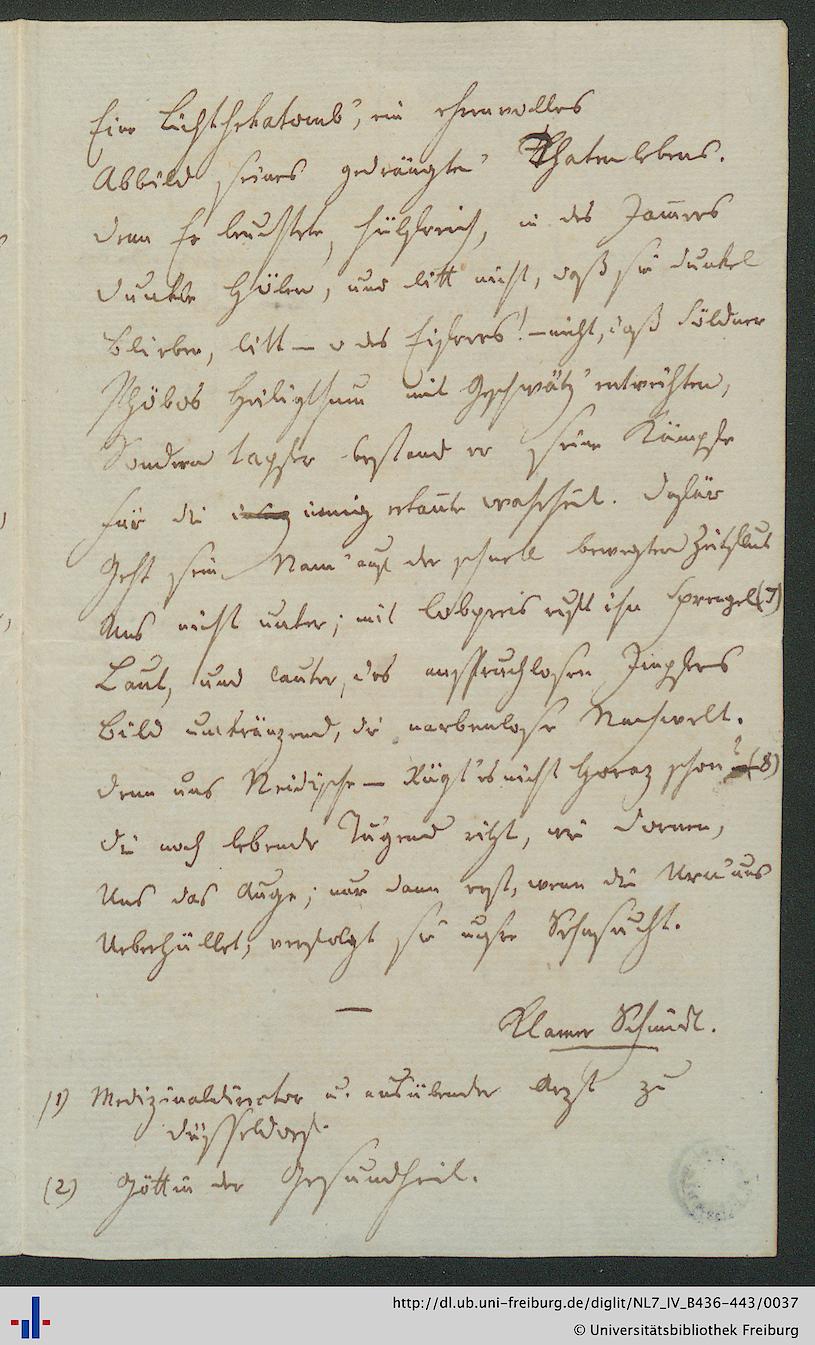 Eine Lichthekatomb', ein ehrenvolles
Abbild seines gedrängten Thatenlebens.
Denn Er leuchtete, hülfreich, in des Jam̄ers
Dunkle Hölen, und litt nicht, daß sie dunkel
Blieben, litt — o des Eiferers! — nicht, daß Söldner
Phöbos Heiligthum mit Geschwätz' entweihten,
Sondern tapfer bestand er seine Kämpfe
Für die innig erkan̄te Wahrheit. Dafür
Geht sein Nam' auf der schnell bewegten Zeitfluth
Uns nicht unter; mit Lobpreis ruft ihn Sprengel (7)
Laut, und lauter, des anspruchlosen Impfers
Bild umkränzend, die narbenlose Nachwelt.
Denn uns Neidische — Rügt' es nicht Horaz schon? (8)
Die noch lebende Tugend ritzt, wie Dornen,
Uns das Auge; nur dann erst, wenn die Urn' uns
Ueberhüllet, verfolgt sie unsre Sehnsucht.
—
Klamer Schmidt.
(1) Medizinaldirector u. ausübender Arzt zu
Düsseldorf.
(2) Göttin der Gesundheit.
http://dl.ub.uni-freiburg.de/diglit/NL7_IV_B436-443/0037
© Universitätsbibliothek Freiburg